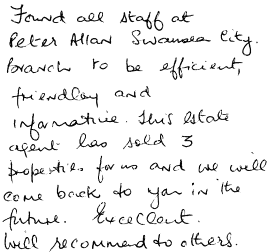 Found all staff at
Peter Allan Swansea City.
Branch to be efficient,
friendlay and
informative. This Estate
agent has sold 3
properties for us and we will
come back to you in the
future. Excellent.
Will recommend to others.